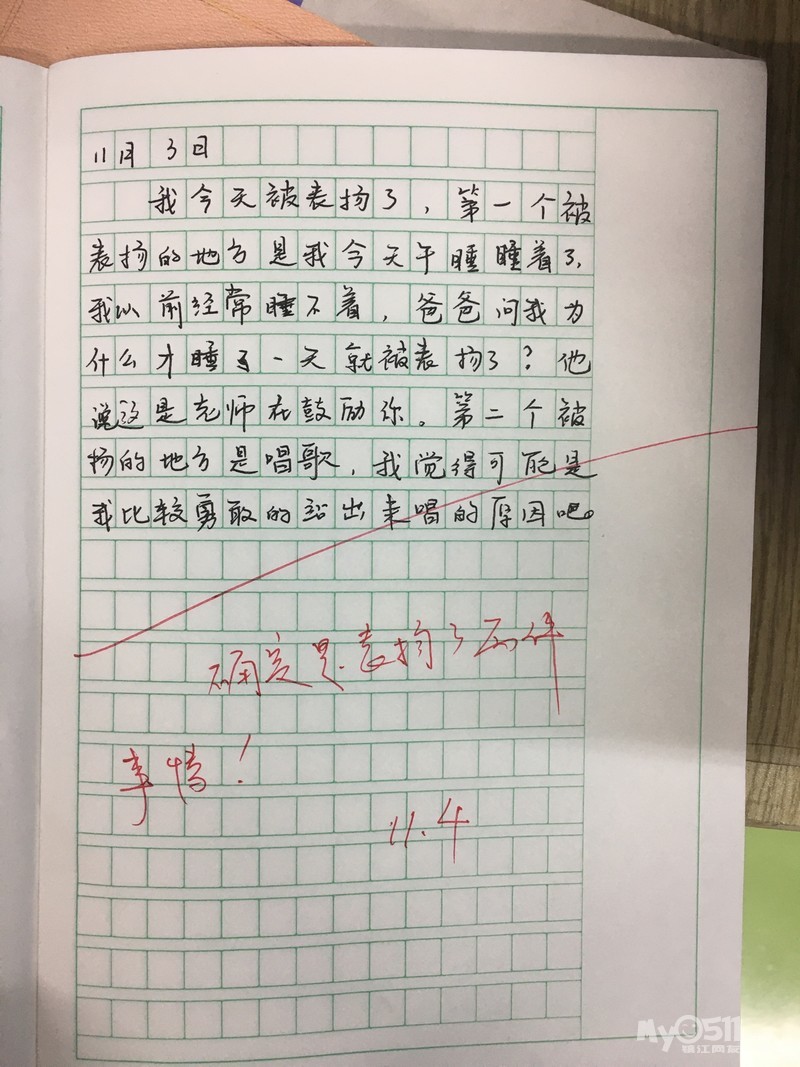 11月3日
我今天被表扬了，第一个被
表扬的地方是我今天午睡睡着了，
我以前经常睡不着，爸爸问我为
什么才睡了一天就被表扬了？他
说这是老师在鼓励你。第二个被
扬的地方是唱歌，我觉得可能是
我比较勇敢的站出来唱的原因吧。
确定是表扬了两件
事情！
11.4
My0511
镇江网友